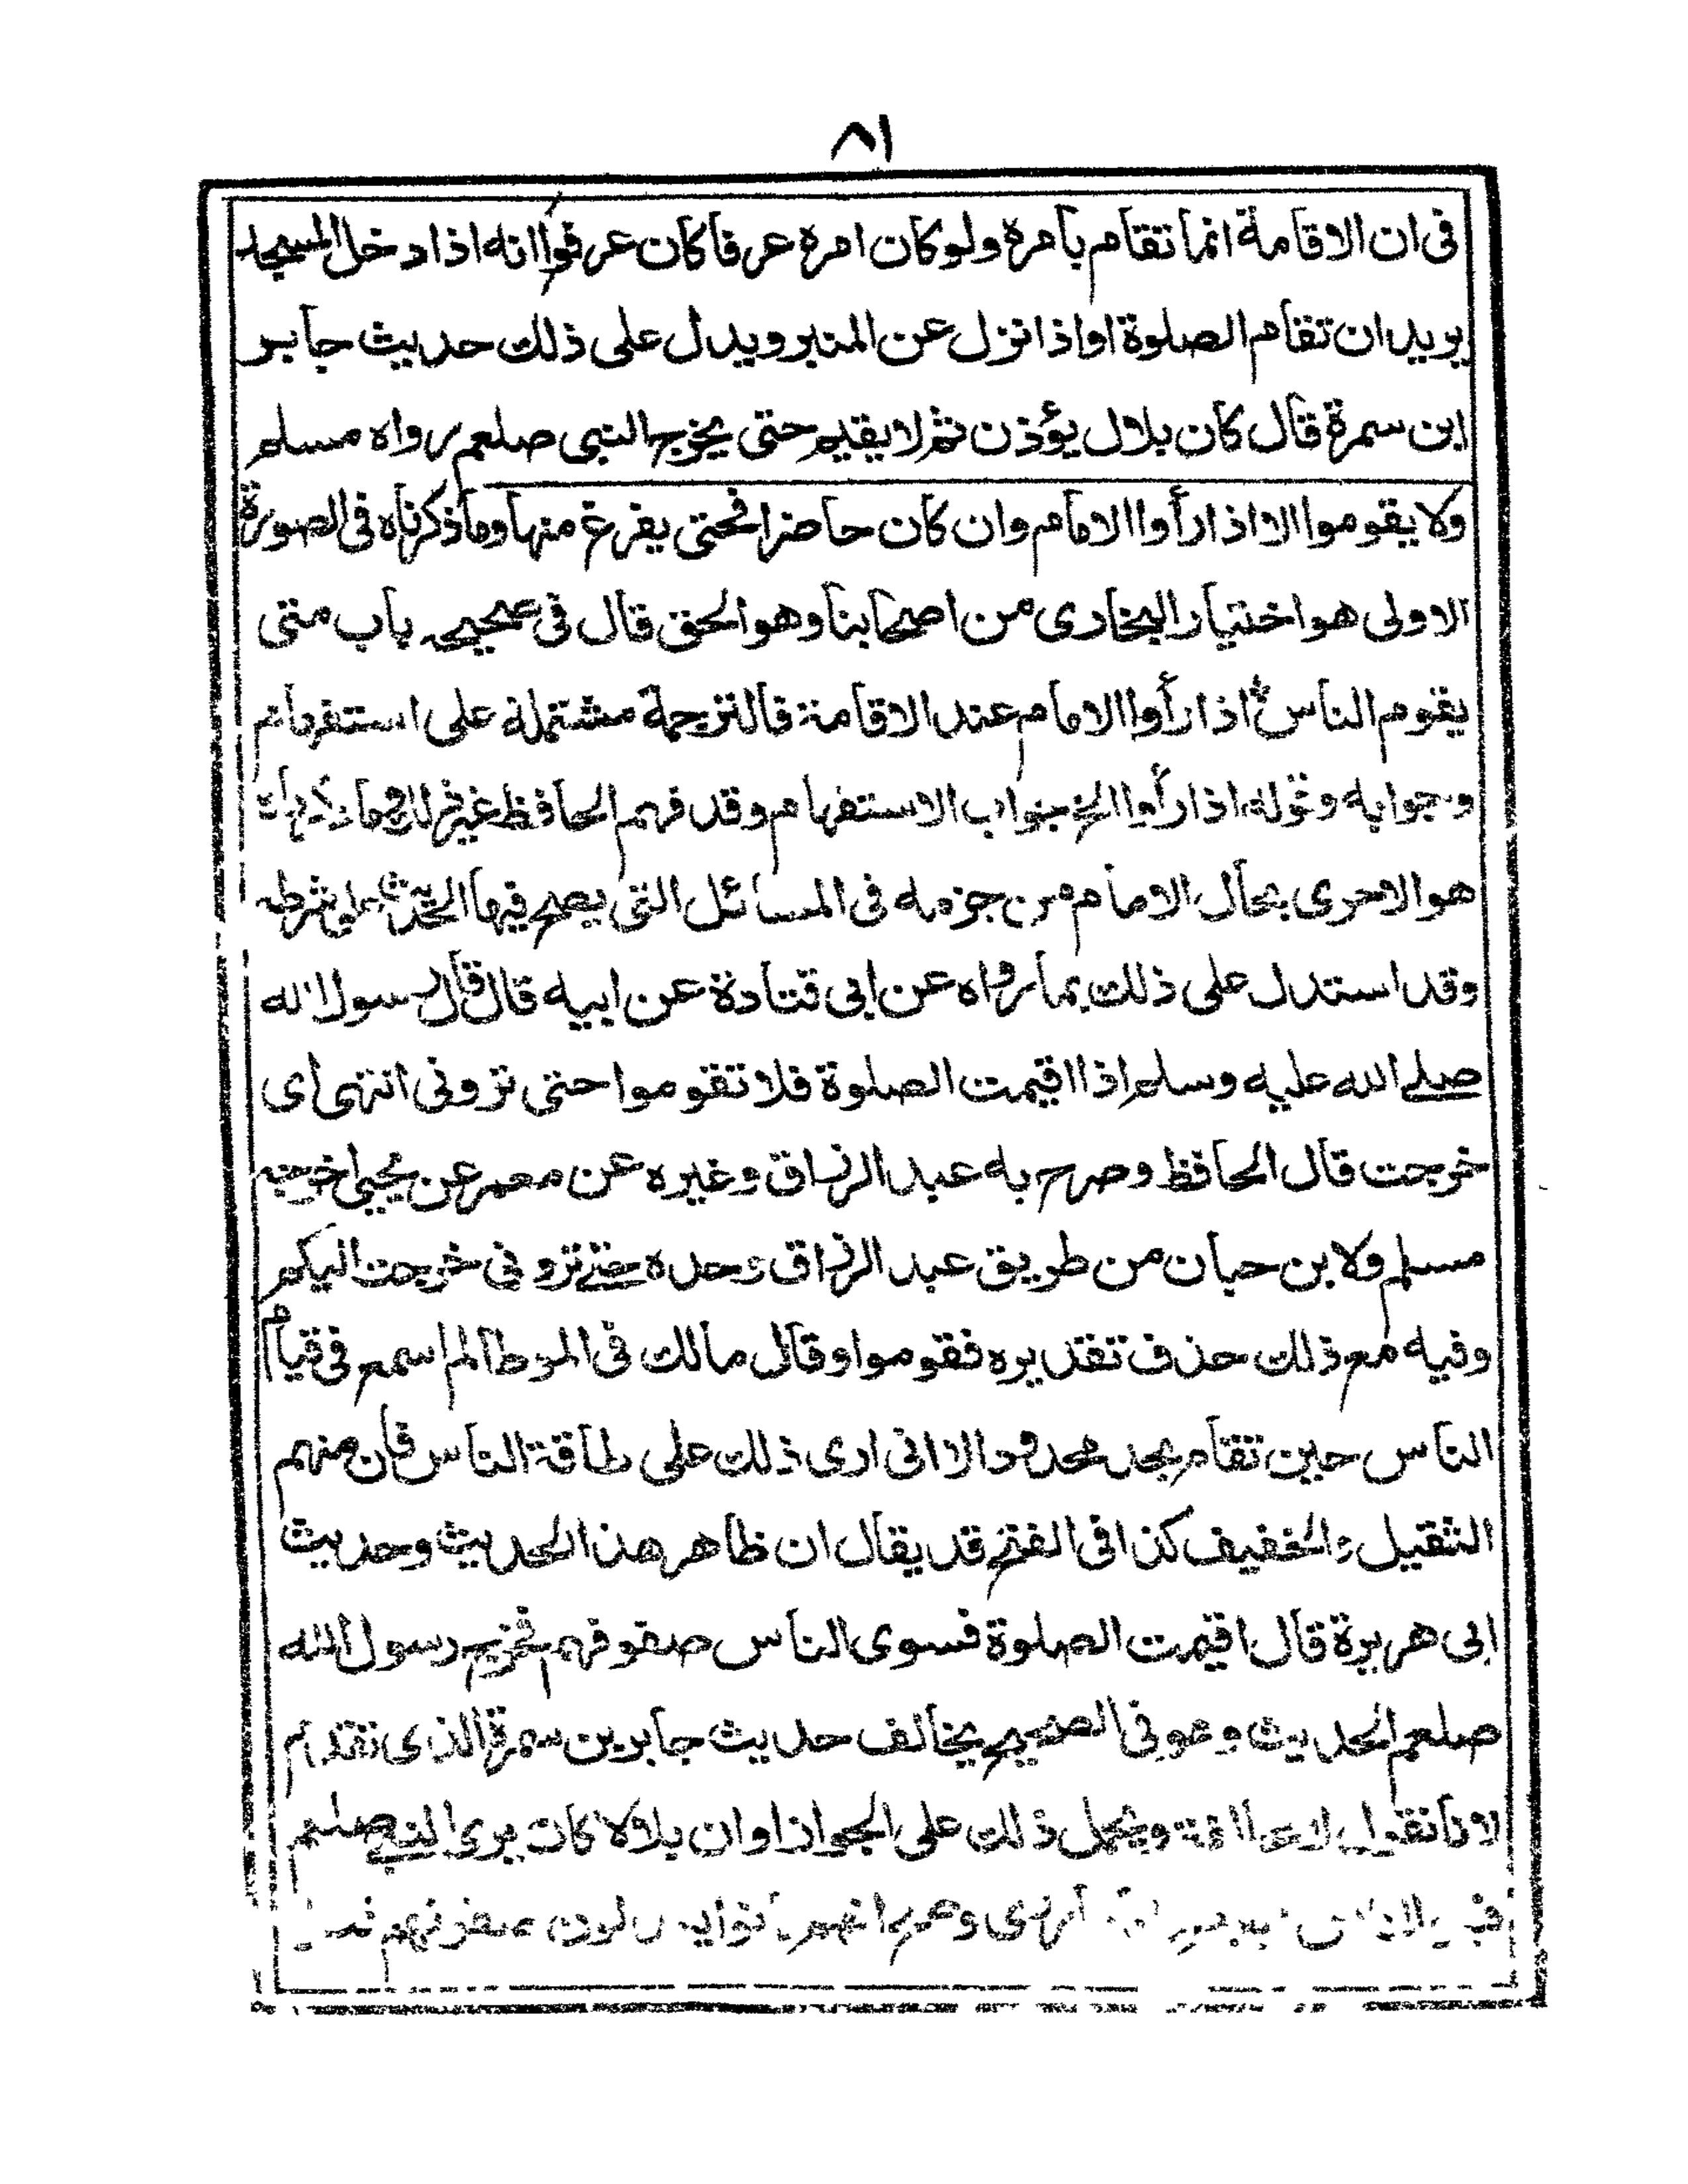 ٨١
فى ان الاقامة انما تقام بامره ولو كان امره عرفا كان عرفوا انه اذا دخل المسجد
يريد ان تقام الصلوة او اذا نزل عن المنبر ويدل على ذلك حديث جابر
ابن سمرة قال كان بلال يؤذن ثم لا يقيم حتى يخرج النبى صلعم رواه مسلم
ولا يقوموا الا اذا رأوا الامام وان كان حاضرا فحتى يفرغ منها وما ذكرناه فى الصورة
الاولى هو اختيار البخارى من اصحابنا وهو الحق قال فى صحيحه باب متى
يقوم الناس اذا رأوا الامام عند الاقامة فالترجمة مشتملة على استفهام
وجوابه وقوله اذا رأوا الخ جواب الاستفهام وقد فهم الحافظ غير
هو الاحرى بحال الامام من جزمه فى المسائل التى يصح فيها على شرطه
وقد استدل على ذلك بما رواه عن ابى قتادة عن ابيه قال قال رسول الله
صلے الله عليه وسلم اذا اقيمت الصلوة فلا تقوموا حتى ترونى انتهى اى
خرجت قال الحافظ وصرح به عبد الرزاق وغيره عن معمر عن يحيى اخرجه
مسلم ولابن حبان من طريق عبد الرزاق وحده حتے ترونى خرجت اليكم
وفيه مع ذلك حذف تقديره فقوموا وقال مالك فى الموطا لم اسمع فى قيام
الناس حين تقام بحد محدود الا انى ارى ذلك على طاقة الناس فان منهم
الثقيل والخفيف كذا فى الفتح قد يقال ان ظاهر هذا الحديث وحديث
ابى هريرة قال اقيمت الصلوة فسوى الناس صفوفهم فخرج رسول الله
صلعم الحديث وهو فى الصحيح يخالف حديث جابر بن سمرة الذى تقدم
لانا نقول ويحمل ذلك على الجواز او ان بلالا كان يرى النبے صلعم